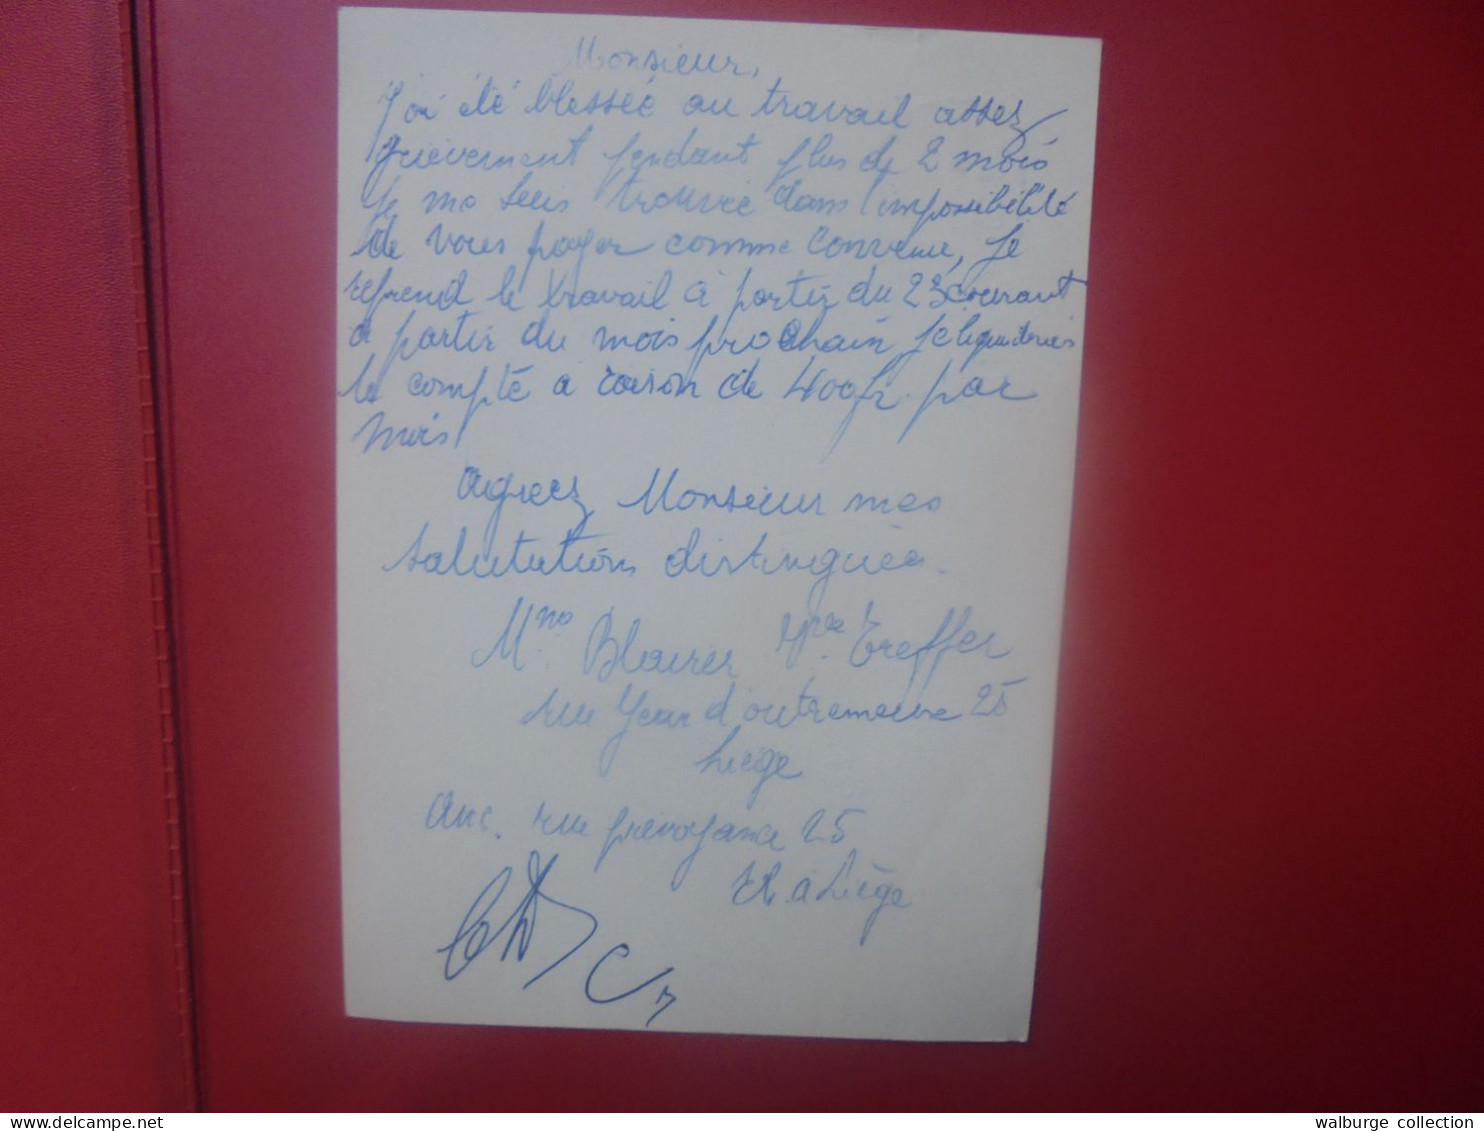 Monsieur,
J'ai été blessée au travail assez
grièvement pendant plus de 2 mois
Je me suis trouvée dans l'impossibilité
de vous payer comme convenu, Je
reprend le travail à partir du 23 courant
a partir du mois prochain Je liquiderais
le compte a raison de 400fr. par
mois
Agreez Monsieur mes
salutations distinguées.
Mme Vve Treffer
rue Jean d'outremeuse 25
Liège
Anc. rue prévoyance 25
a Liège
delcampe.net
walburge collection